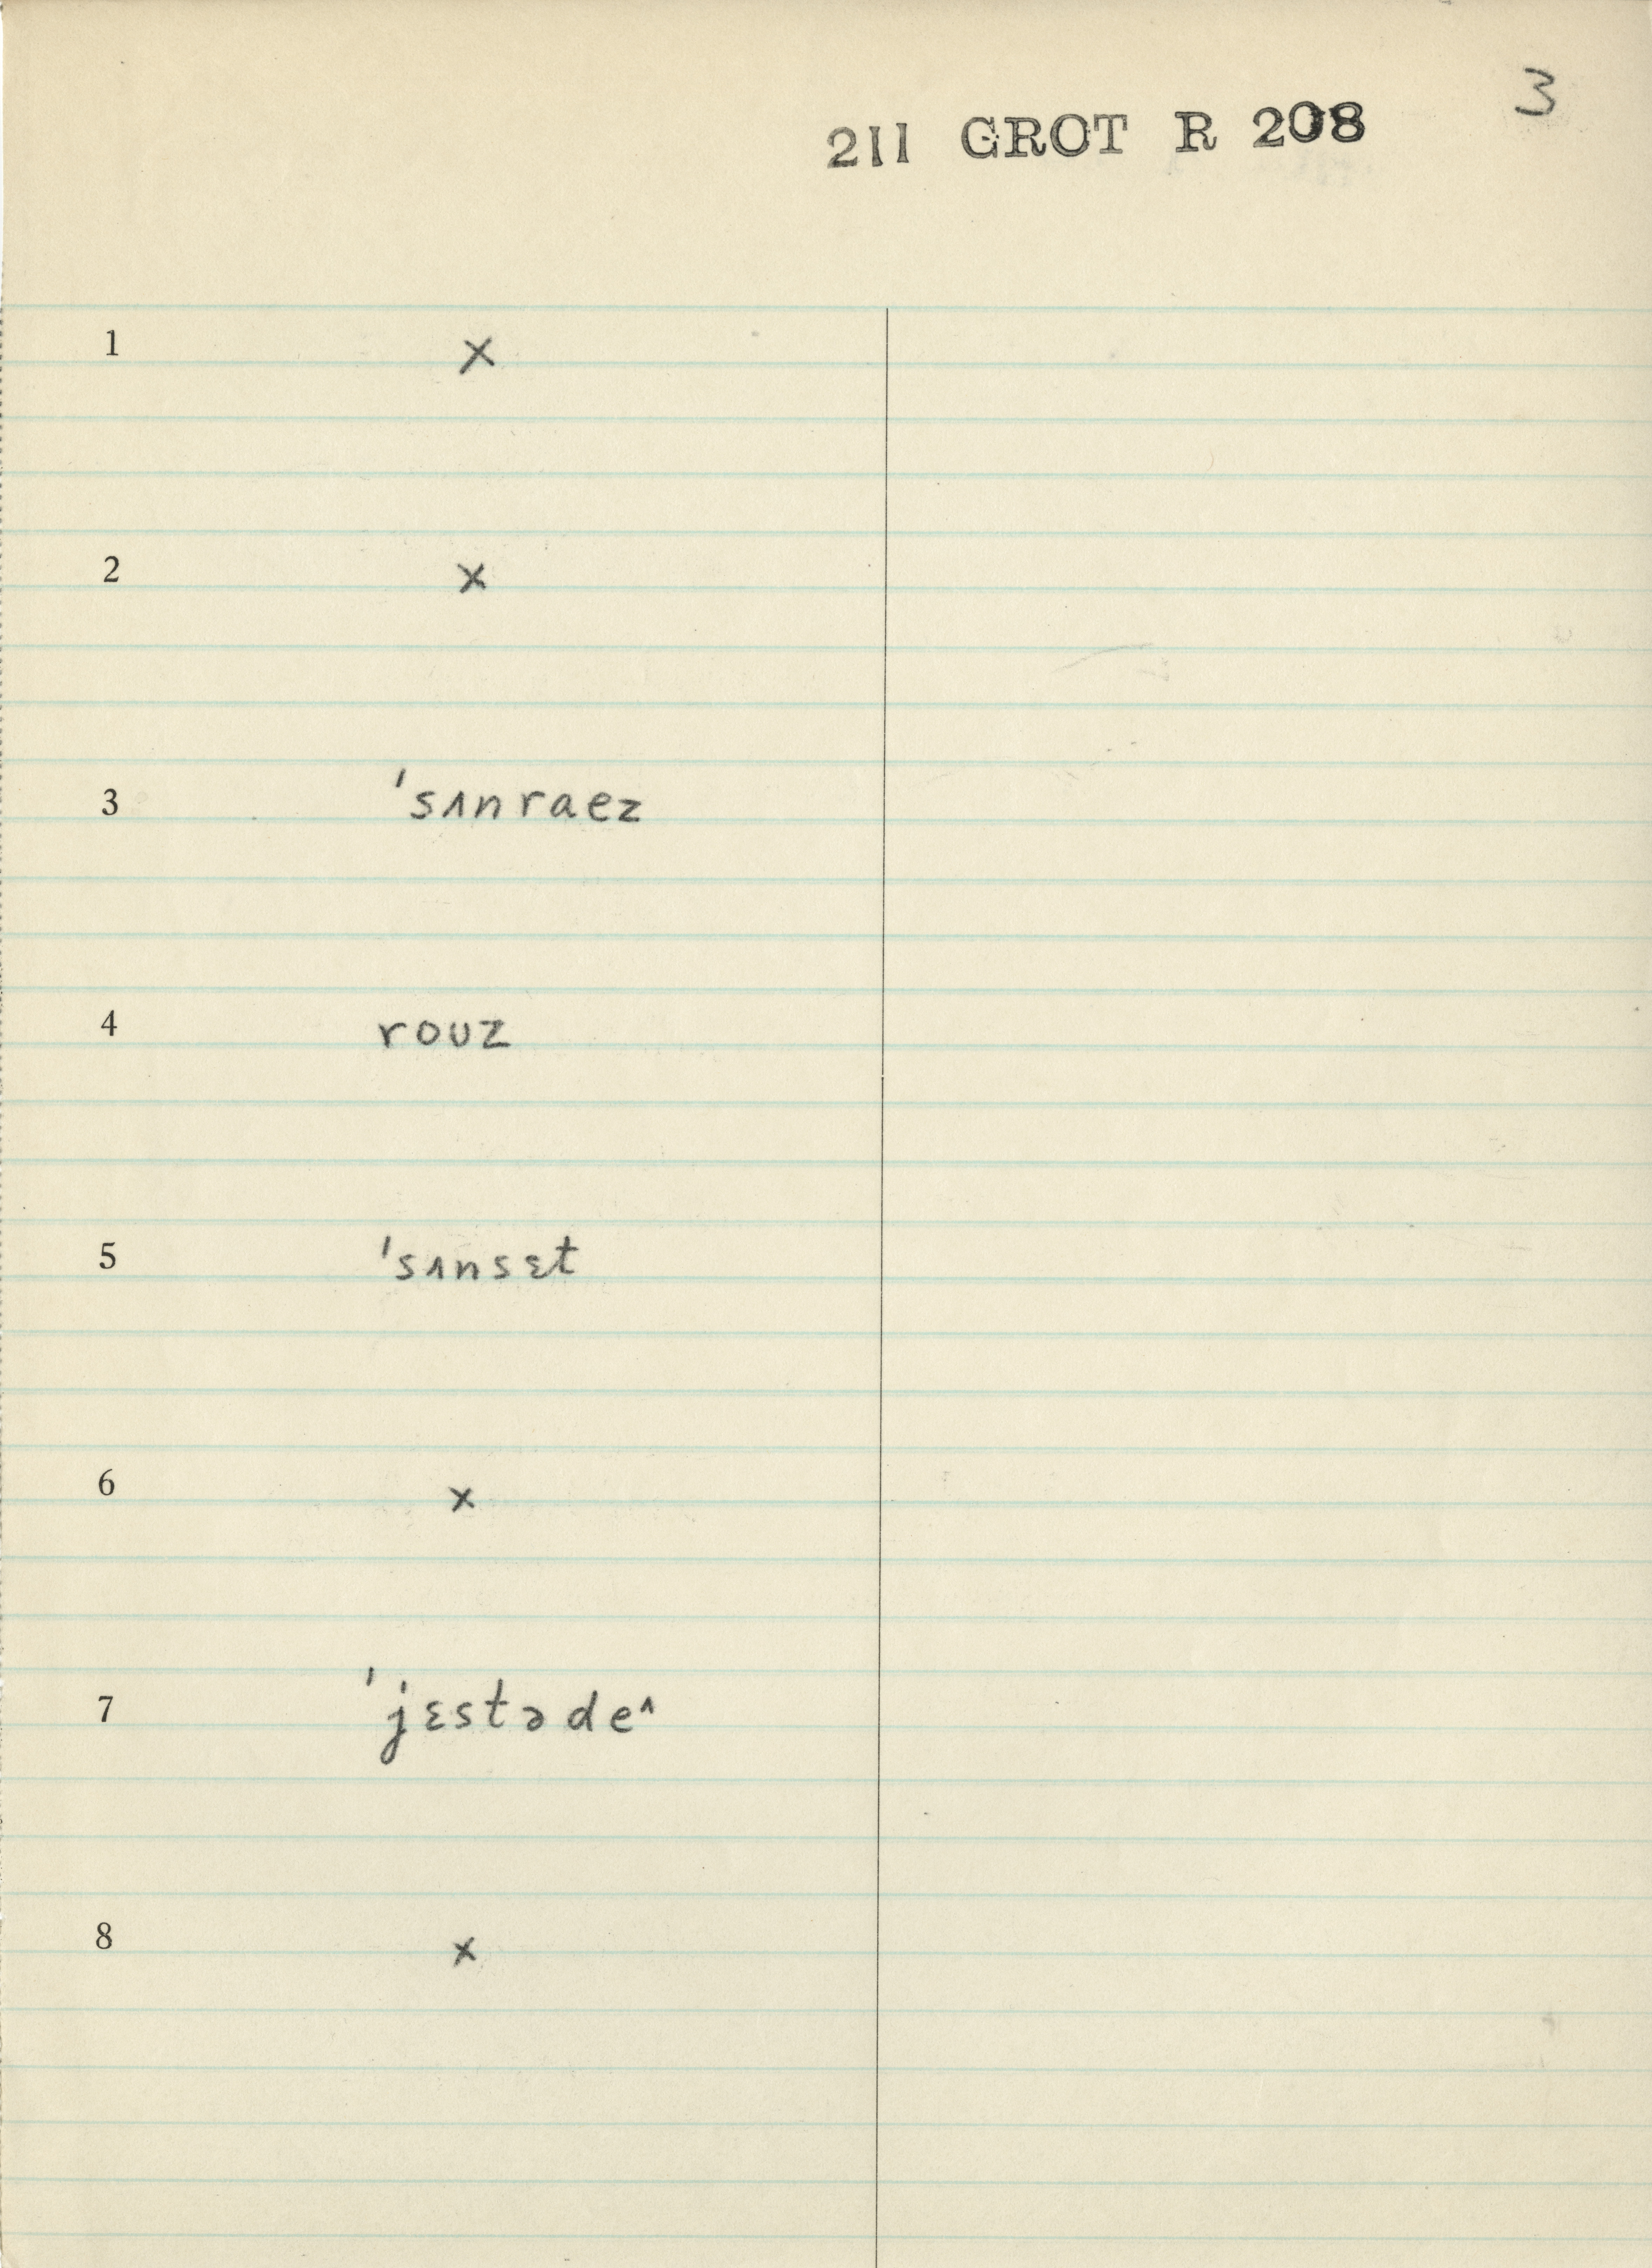 3
211 GROT R 208
1 ×
2 ×
3 ˈsʌnraez
4 roʊz
5 ˈsʌnsɛt
6 ×
7 ˈjɛstəde^
8 ×